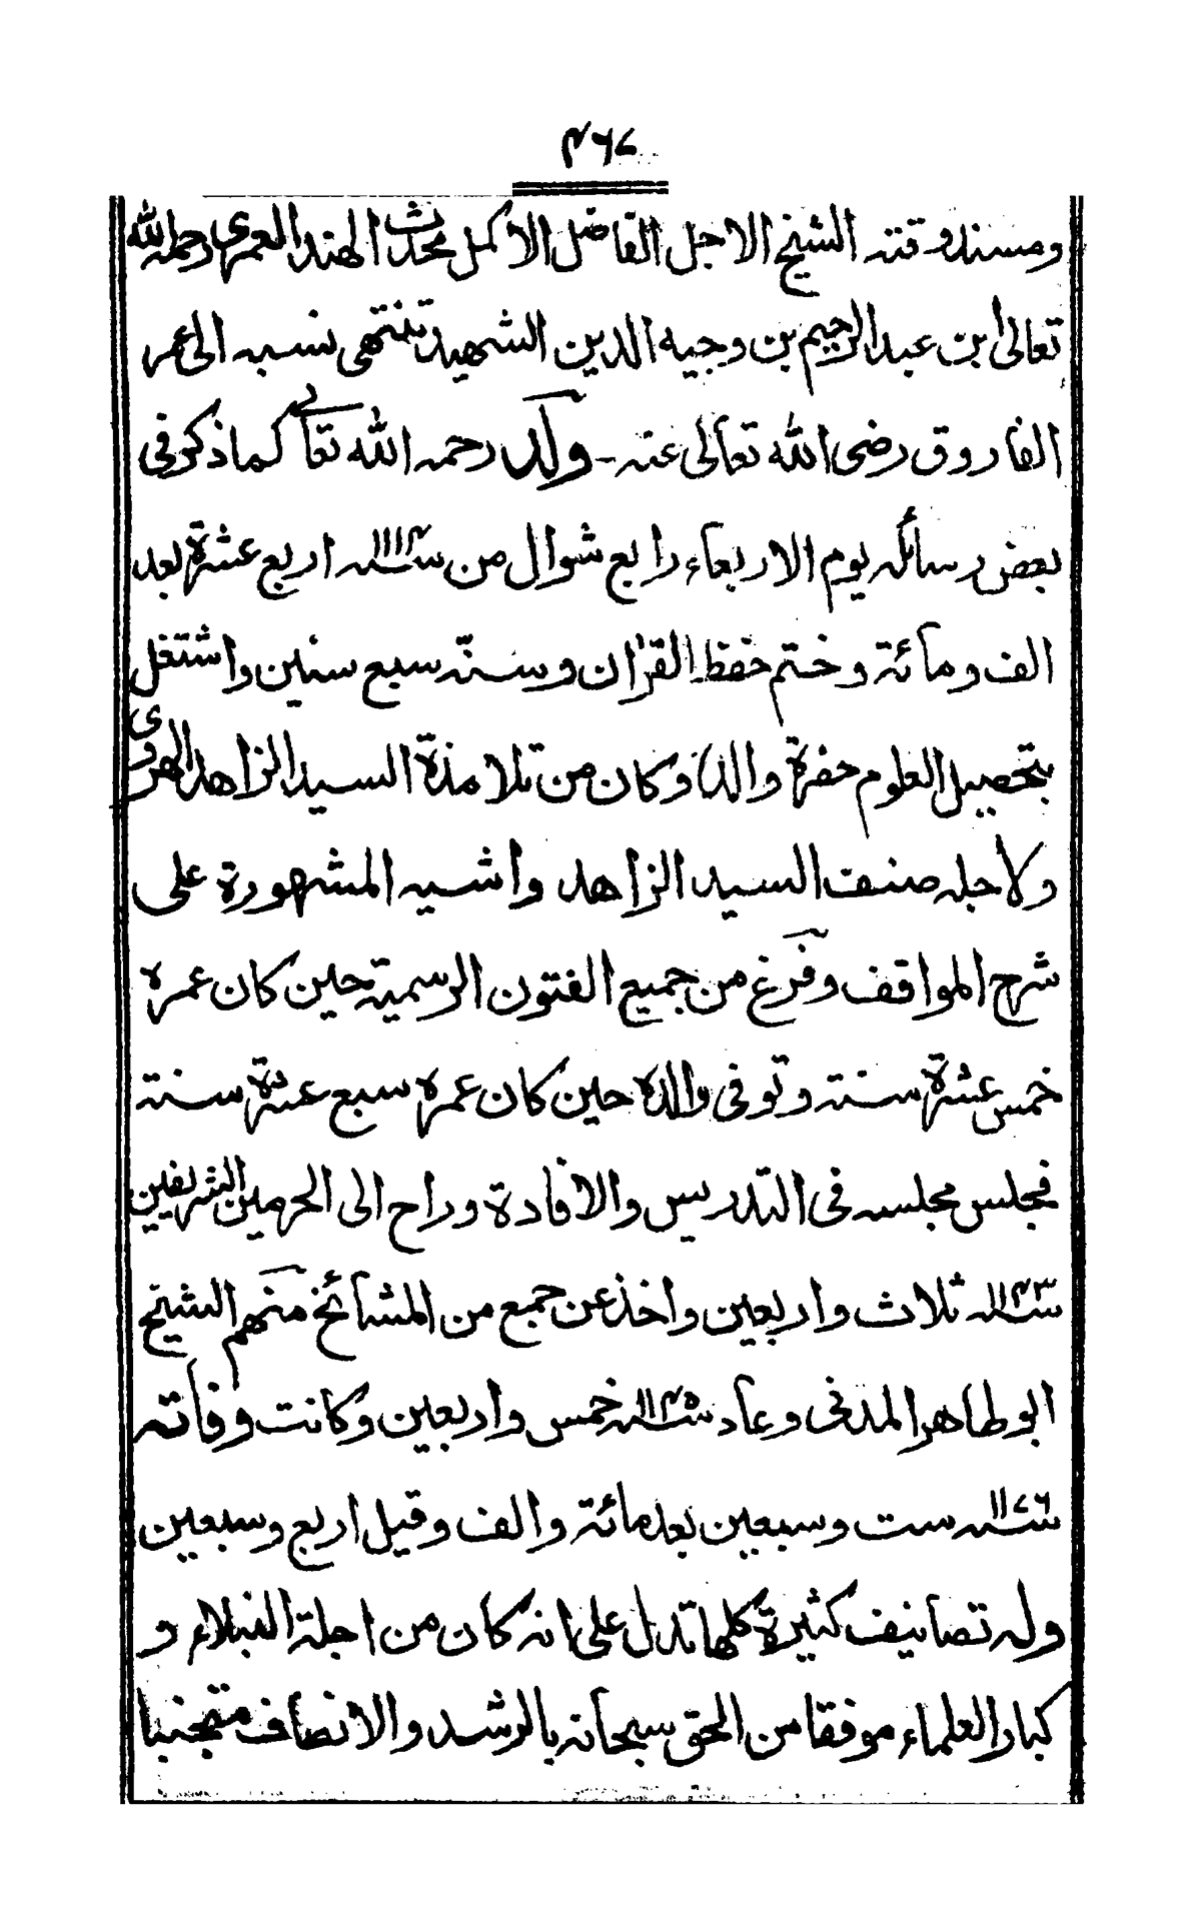 ٤٦٧
ومسند وقته الشيخ الاجل الفاضل الاكمل محدث الهند العمرى رحمه الله
تعالى ابن عبد الرحيم بن وجيه الدين الشهيد تنتهى نسبه الى عمر
الفاروق رضى الله تعالى عنه - ولد رحمه الله تعالى كما ذكر فى
بعض رسائله يوم الاربعاء رابع شوال من سنه ١١١٤ اربع عشرة بعد
الف ومائة وختم حفظ القرآن وسنه سبع سنين واشتغل
بتحصيل العلوم حضرة والده وكان من تلامذة السيد الزاهد الهروى
ولاجله صنف السيد الزاهد واشيه المشهورة على
شرح المواقف وفرغ من جميع الفنون الرسمية حين كان عمره
خمس عشرة سنة وتوفى والده حين كان عمره سبع عشرة سنة
فجلس مجلسه فى التدريس والافادة وراح الى الحرمين الشريفين
سنه ١١٤٣ ثلاث واربعين واخذ عن جمع من المشائخ منهم الشيخ
ابو طاهر المدنى وعاد سنه ١١٤٥ خمس واربعين وكانت وفاته
سنه ١١٧٦ ست وسبعين بعد مائة والف وقيل اربع وسبعين
وله تصانيف كثيرة كلها تدل على انه كان من اجلة النبلاء و
كبار العلماء موفقا من الحق سبحانه بالرشد والانصاف متجنبا